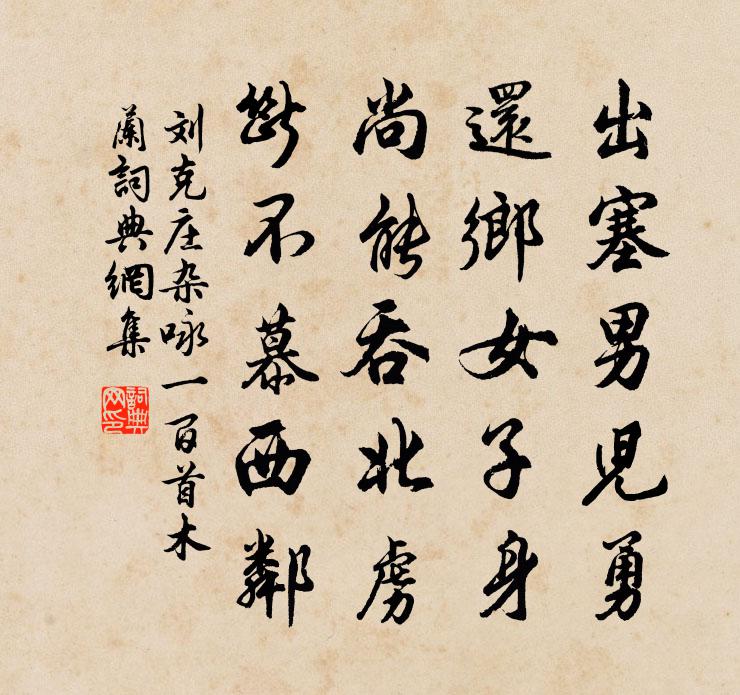 出塞男兒勇
還鄉女子身
尚能吞北虜
斷不慕西鄰
刘克庄杂咏一百首木
蘭詞典網集
詞典
网印